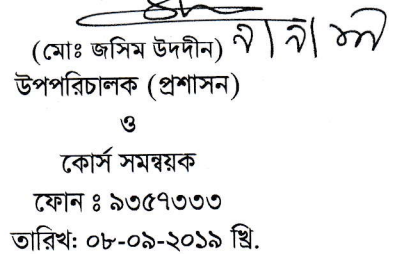 (মোঃ জসিম উদদীন)
উপপরিচালক (প্রশাসন)
ও
কোর্স সমন্বয়ক
ফোন ঃ ৯৩৫৭৩৩৩
তারিখ: ০৮-০৯-২০১৯ খ্রি.